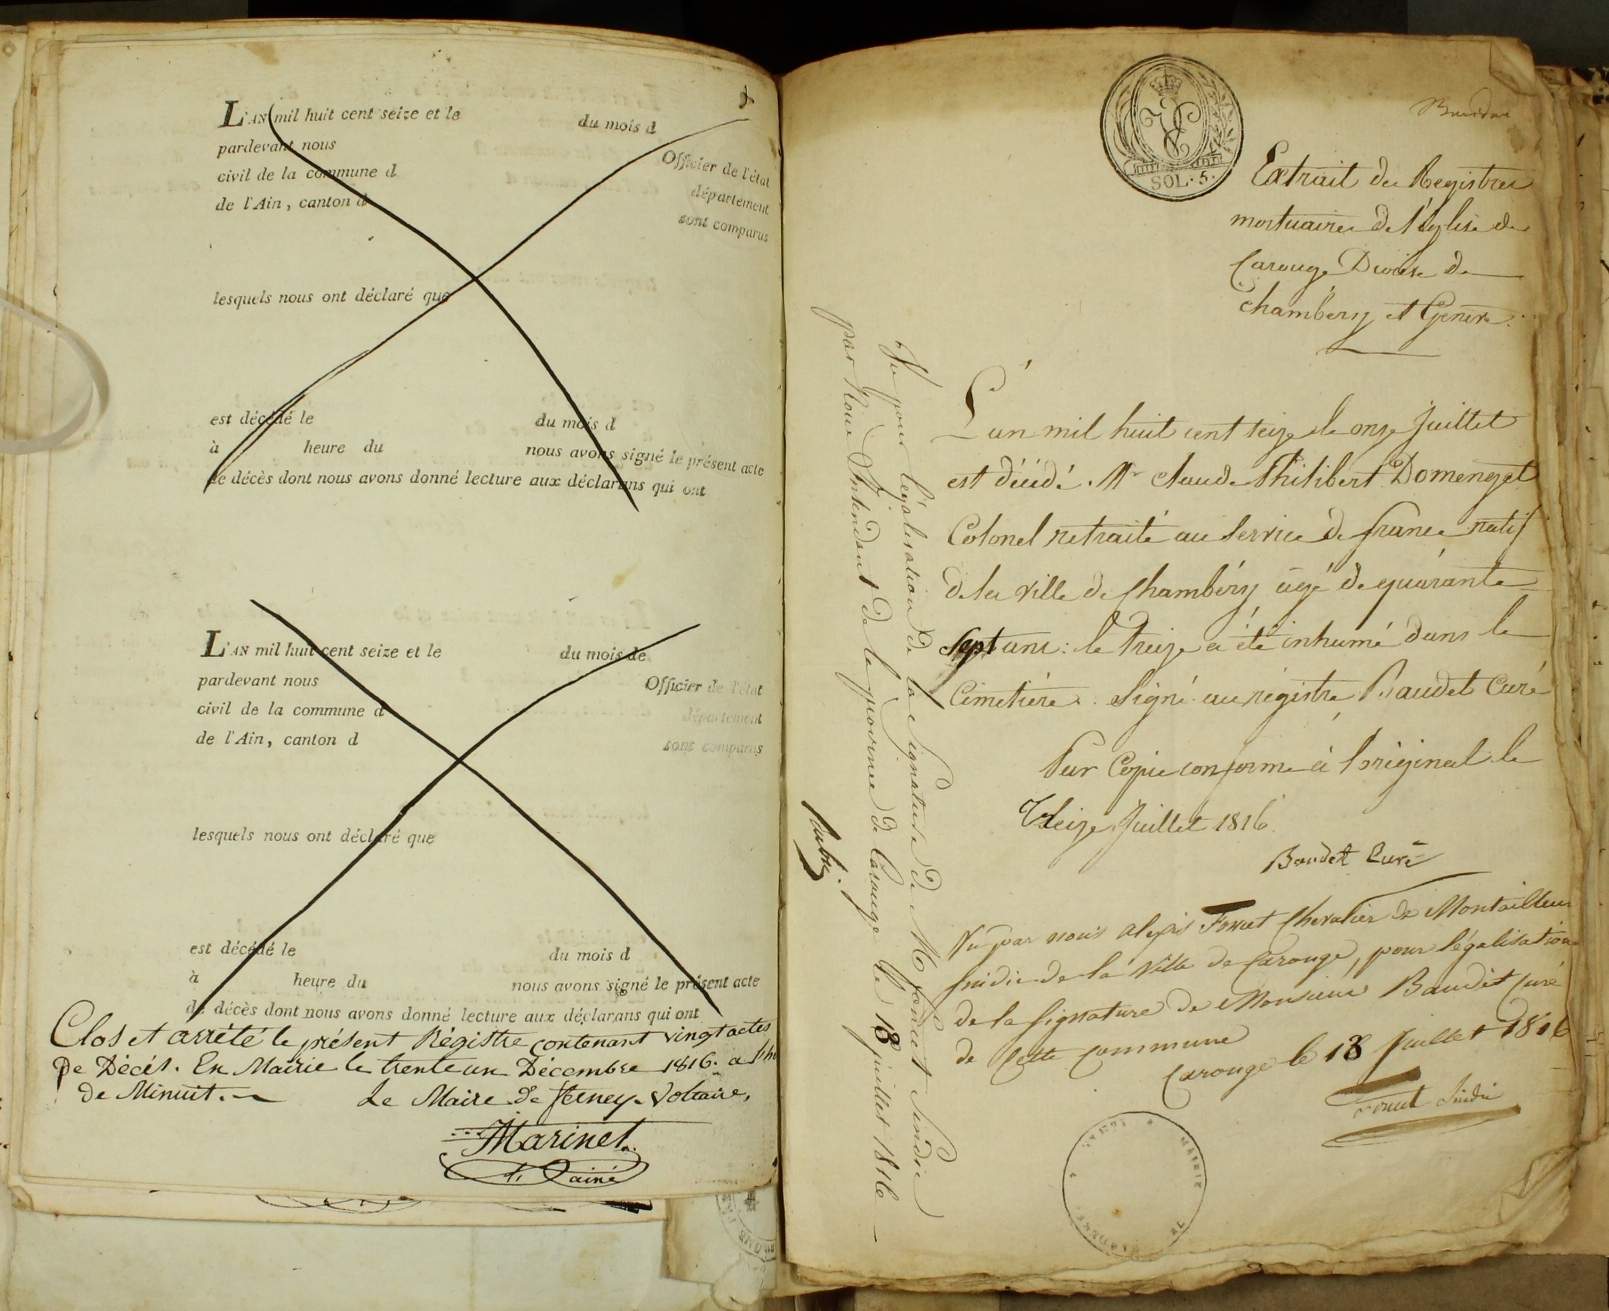 L'AN mil huit cent seize et le du mois d
pardevant nous Officier de l'état
civil de la commune d département
de l'Ain, canton d sont comparus
lesquels nous ont déclaré que
est décédé le du mois d
à heure du nous avons signé le présent acte
de décès dont nous avons donné lecture aux déclarans qui ont
L'AN mil huit cent seize et le du mois de
pardevant nous Officier de l'état
civil de la commune d département
de l'Ain, canton d sont comparus
lesquels nous ont déclaré que
est décédé le du mois d
à heure du nous avons signé le présent acte
de décès dont nous avons donné lecture aux déclarans qui ont
Clos et arrêté le présent Régistre contenant vingt actes
De Décès. En Mairie le trente un Décembre 1816. a
de Minuit. Le Maire de Ferney-Voltaire,
Marinet
ainé
SOL. 5.
Extrait des Registres
mortuaires de l'église de
Carouge Diocèse de
Chambéry et Genève.
L'an mil huit cent seize le onze Juillet
est décédé Mr Claude Philibert Domenget
Colonel retraité au Service de france natif
de la ville de Chambéry agé de quarante
Sept ans: le treize a été inhumé dans le
Cimetière. Signé au régistre Baudet Curé
Pour Copie conforme à l'original le
Juillet 1816
Baudet Curé
Vu par nous alexis Forret Chevalier de Montailleur
sindic de la Ville de Carouge, pour légalisation
de la signature de Monsieur Baudet Curé
de cette commune
Carouge le 18 Juillet 1816
Sindic
Vu pour légalisation de la signature de Mr Sindic
par Nous Intendant de la province de Carouge le 18 juillet 1816
MAIRIE DE